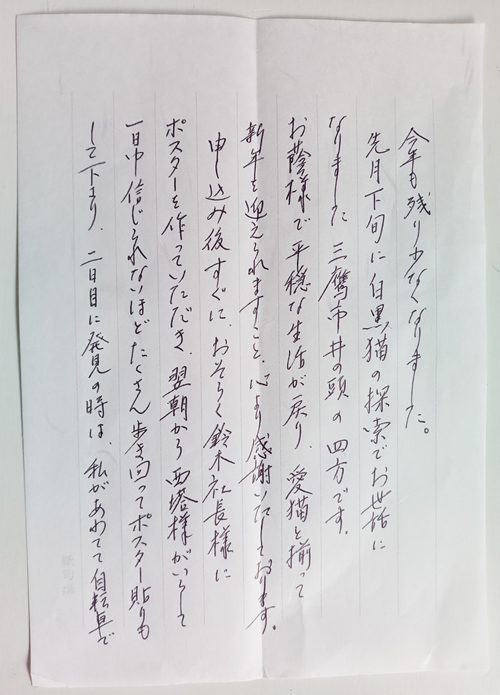 今年も残り少なくなりました。
先月下旬に白黒猫の探索でお世話に
なりました三鷹市井の頭の四方です。
お蔭様で平穏な生活が戻り、愛猫と揃って
新年を迎えられますこと、心より感謝いたしております。
申し込み後すぐに、おそらく鈴木社長様に
ポスターを作っていただき、翌朝から西塔様がいらして
一日中信じられないほどたくさん歩き回ってポスター貼りも
して下さり、二日目に発見の時は、私があわてて自転車で